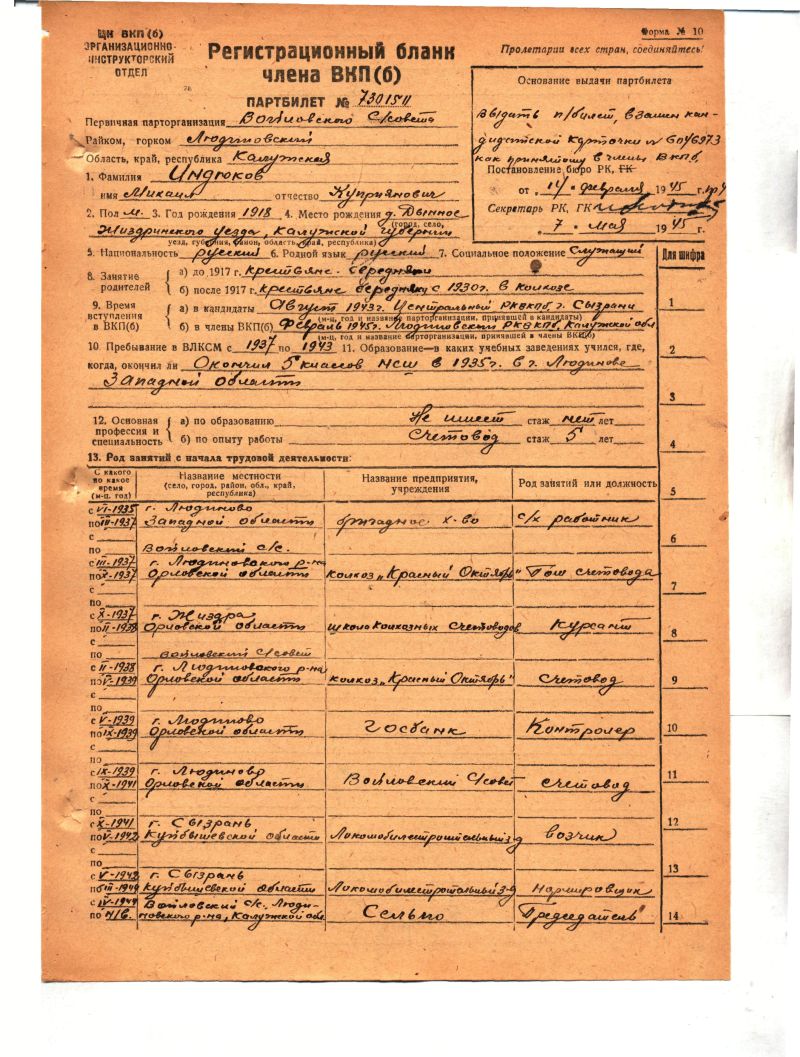 ЦК ВКП(б)
ОРГАНИЗАЦИОННО-
ИНСТРУКТОРСКИЙ
ОТДЕЛ
Регистрационный бланк
члена ВКП(б)
ПАРТБИЛЕТ № 7301511
Форма № 10
Пролетарии всех стран, соединяйтесь!
Основание выдачи партбилета
Выдать п/билет, взамен кан-
дидатской карточки №
как принятому в члены ВКПб.
Постановление бюро РК, ГК
от „14“ февраля 1945 г.
Секретарь РК, ГК
„7“ мая 1945 г.
Первичная парторганизация Войловского С/совета
Райком, горком Людиновский
Область, край, республика Калужская
1. Фамилия Индюков
имя Михаил отчество Куприянович
2. Пол м. 3. Год рождения 1918 4. Место рождения д. Дынное
(город, село,
Жиздринского уезда, Калужской губернии
уезд, губерния, район, область, край, республика)
5. Национальность русский 6. Родной язык русский 7. Социальное положение Служащий
Для шифра
8. Занятие родителей
а) до 1917 г. крестьяне-середняки
б) после 1917 г. крестьяне середняки с 1930г. в колхозе
9. Время вступления в ВКП(б)
а) в кандидаты Август 1943г. Центральный РКВКПб г. Сызрани
(м-ц, год и название парторганизации, принявшей в кандидаты)
б) в члены ВКП(б) Февраль 1945г. Людиновский РКВКПб, Калужской обл.
(м-ц, год и название парторганизации, принявшей в члены ВКП(б)
10. Пребывание в ВЛКСМ с 1937 по 1943 11. Образование—в каких учебных заведениях учился, где,
когда, окончил ли Окончил 5 классов НСШ в 1935г. в г. Людинове
Западной области
12. Основная профессия и специальность
а) по образованию Не имеет стаж нет лет
б) по опыту работы Счетовод стаж 5 лет
13. Род занятий с начала трудовой деятельности:
С какого по какое время (м-ц, год)
Название местности (село, город, район, обл., край, республика)
Название предприятия, учреждения
Род занятий или должность
с VI-1935 г. Людиново
по III-1937 Западной области х-во с/х работник
с
по Войловский с/с.
с III-1937 г. Людиновского р-на
по X-1937 Орловской области колхоз „Красный Октябрь“ Пом счетовода
с
по
с X-1937 г. Жиздра
по II-1938 Орловской области школа колхозных счетоводов Курсант
с
по Войловский с/совет
с II-1938 г. Людиновского р-на
по V-1939 Орловской области колхоз „Красный Октябрь“ Счетовод
с
по
с V-1939 г. Людиново
по IX-1939 Орловской области Госбанк Контролер
с
по
с IX-1939 г. Людиново
по X-1941 Орловской области Войловский С/совет счетовод
с
по
с X-1941 г. Сызрань
по V-1942 Куйбышевской области Локомобилестроительный з-д возчик
с
по
с V-1942 г. Сызрань
по III-1944 Куйбышевской области Локомобилестроительный з-д нормировщик
с IV-1944 Войловский с/с, Люди-
по н/в. новского р-на, Калужской обл. Сельпо Председатель
1
2
3
4
5
6
7
8
9
10
11
12
13
14